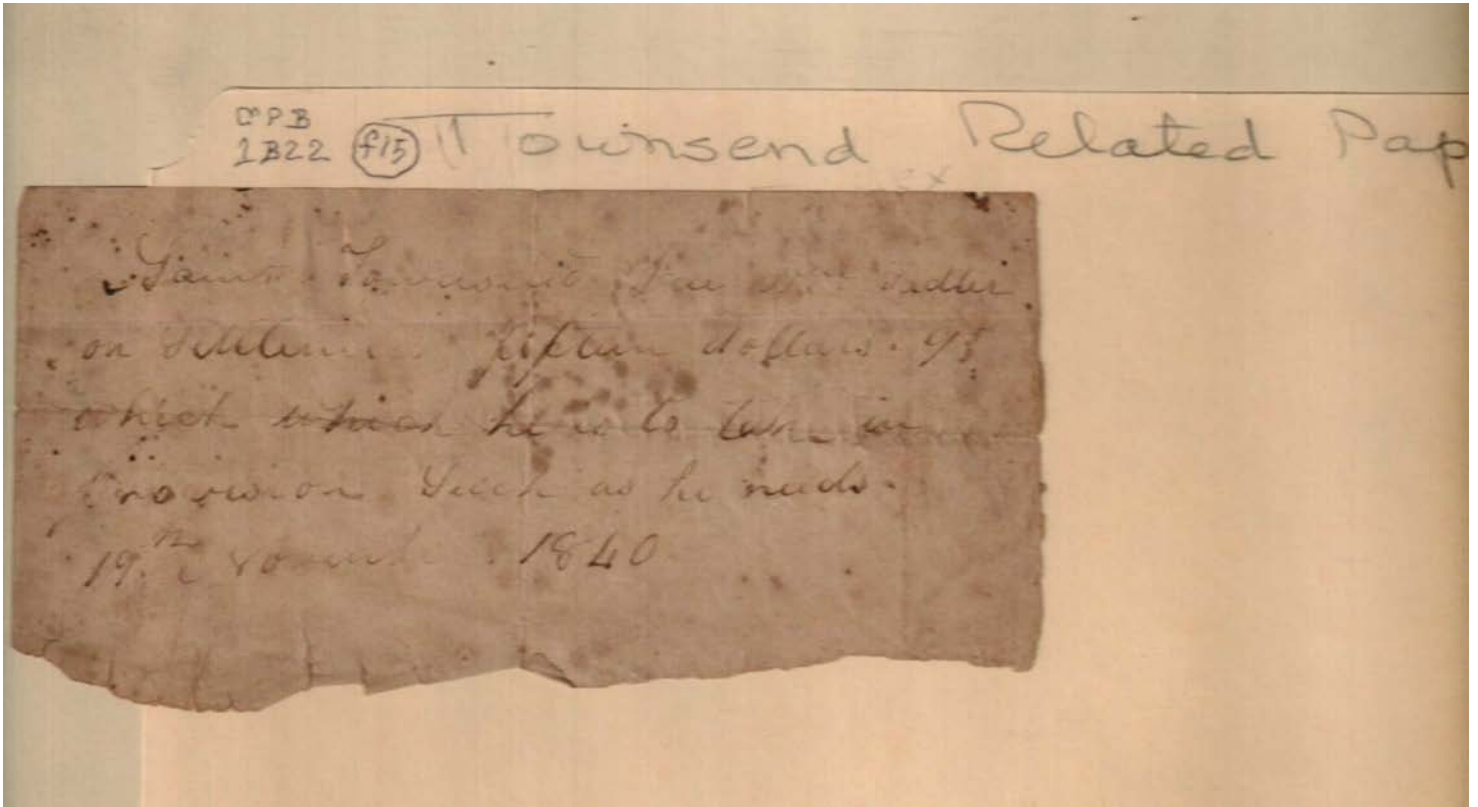 CPB
1B22 f15 Townsend Related Pap
Townsend Due
on fifteen dollars.
which which he is to take in
Provision Such as he needs.
19th November 1840